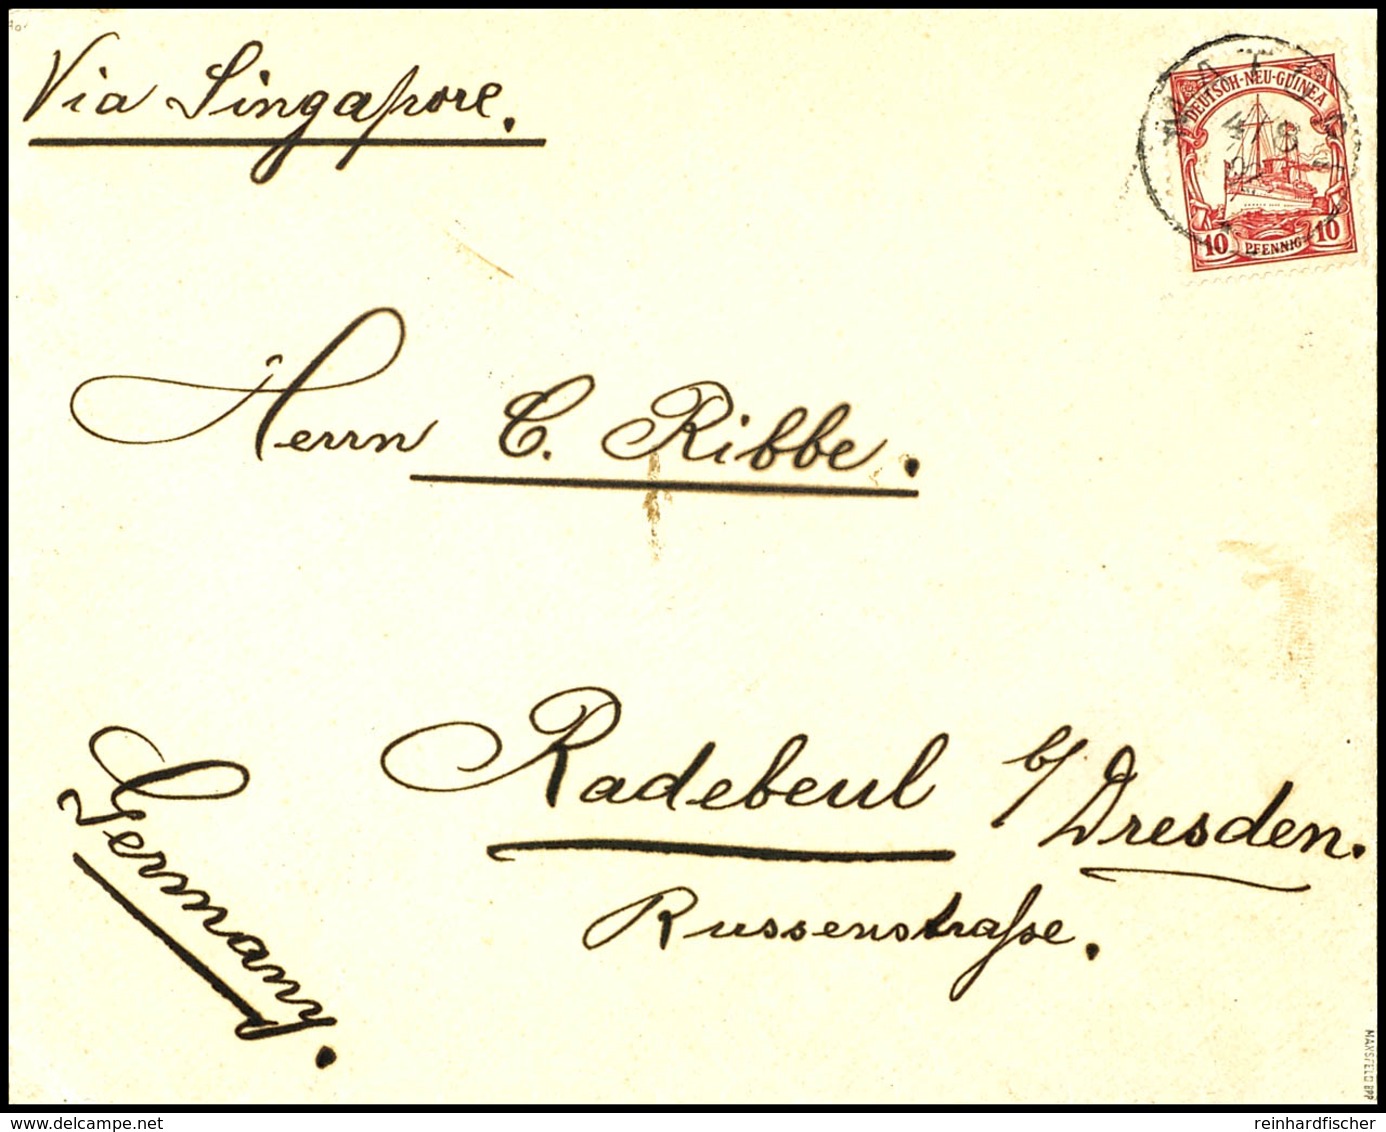 Via Singapore.
DEUTSCH-NEU-GUINEA
10 PFENNIG 10
Herrn C. Ribbe.
Radebeul b/Dresden.
Russenstraße.
Germany.
MANSFELD BPP
reinhardfischer